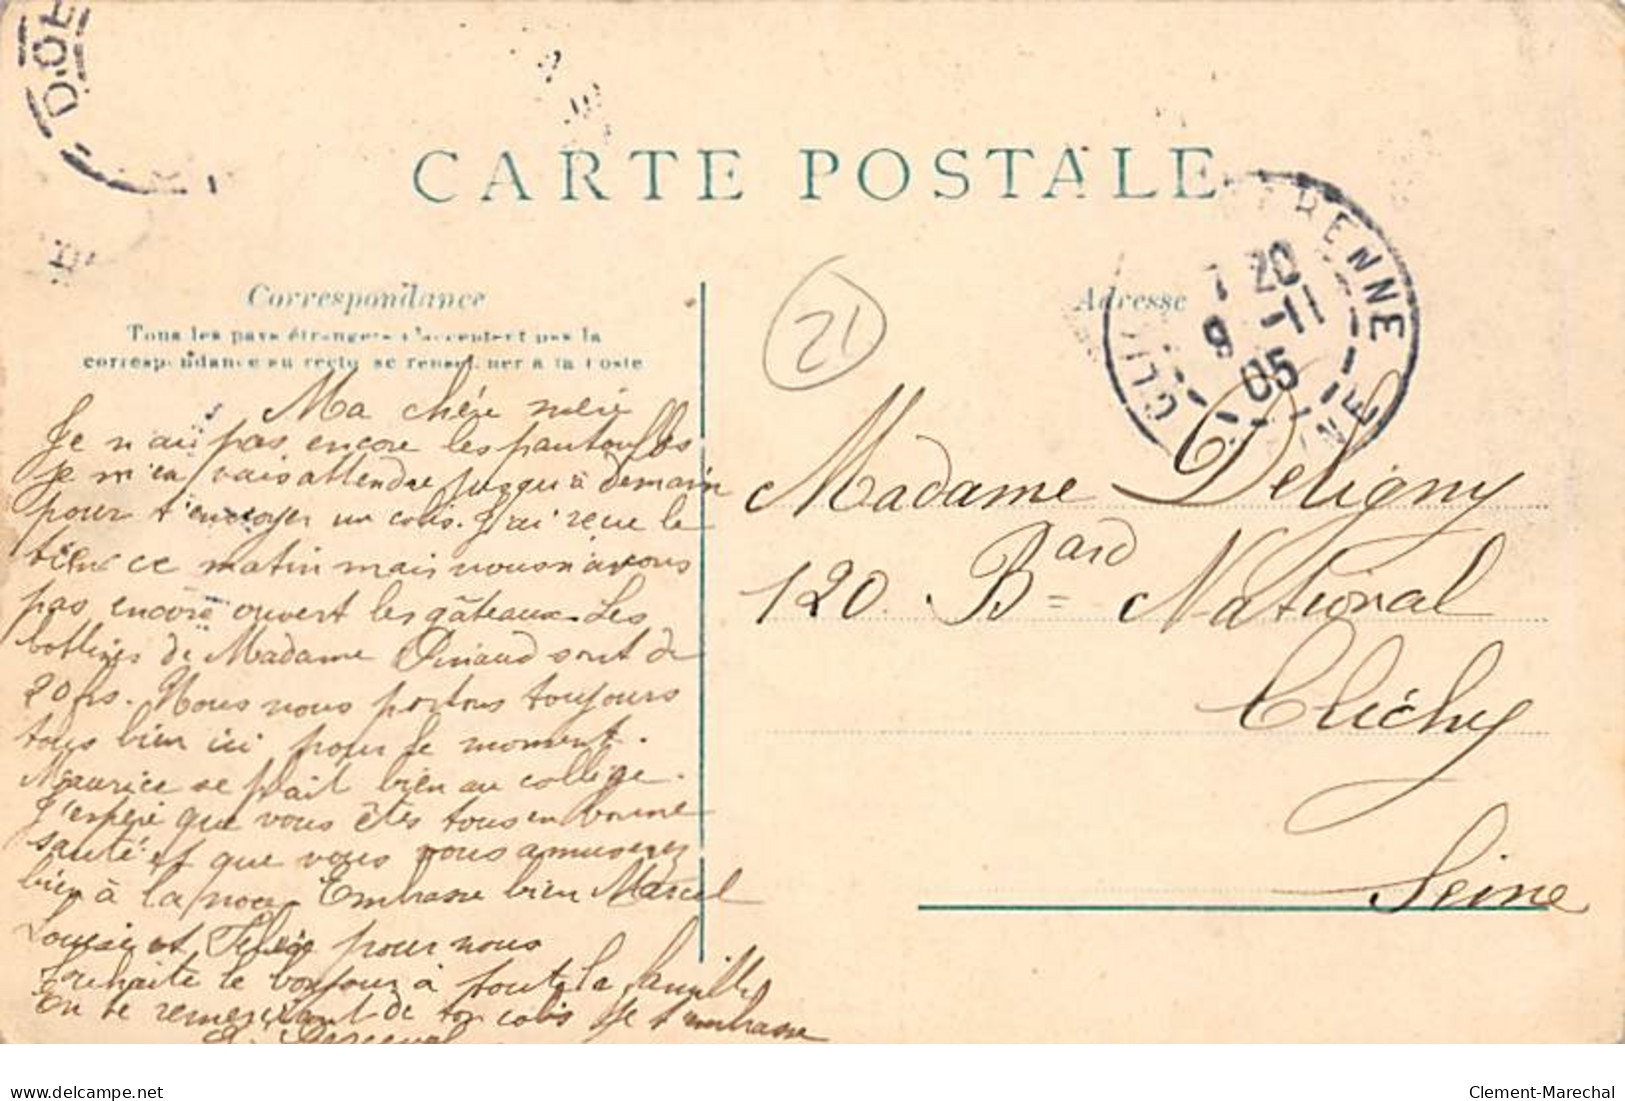 CARTE POSTALE
Correspondance
Tous les pays étrangers n'acceptent pas la
correspondance au recto se renseigner à la Poste
Adresse
21
7 20
9 -11
05
Ma chère mère
Je n'ai pas encore les pantoufles
je m'en vais attendre jusqu'à demain
pour t'envoyer un colis. J'ai reçue le
tien ce matin mais nous n'avons
pas encore ouvert les gâteaux. Les
bottines de Madame sont de
20 frs. Nous nous portons toujours
tous bien ici pour le moment.
Maurice se plait bien au collège.
J'espère que vous êtes tous en bonne
santé et que vous vous amuserez
bien à la noce. Embrasse bien Marcel
Louise et pour nous
souhaite le bonjour à toute la famille
En te remerciant de ton colis je t'embrasse
Madame Deligny
120 Bard National
Clichy
Seine
delcampe.net
Clement-Marechal